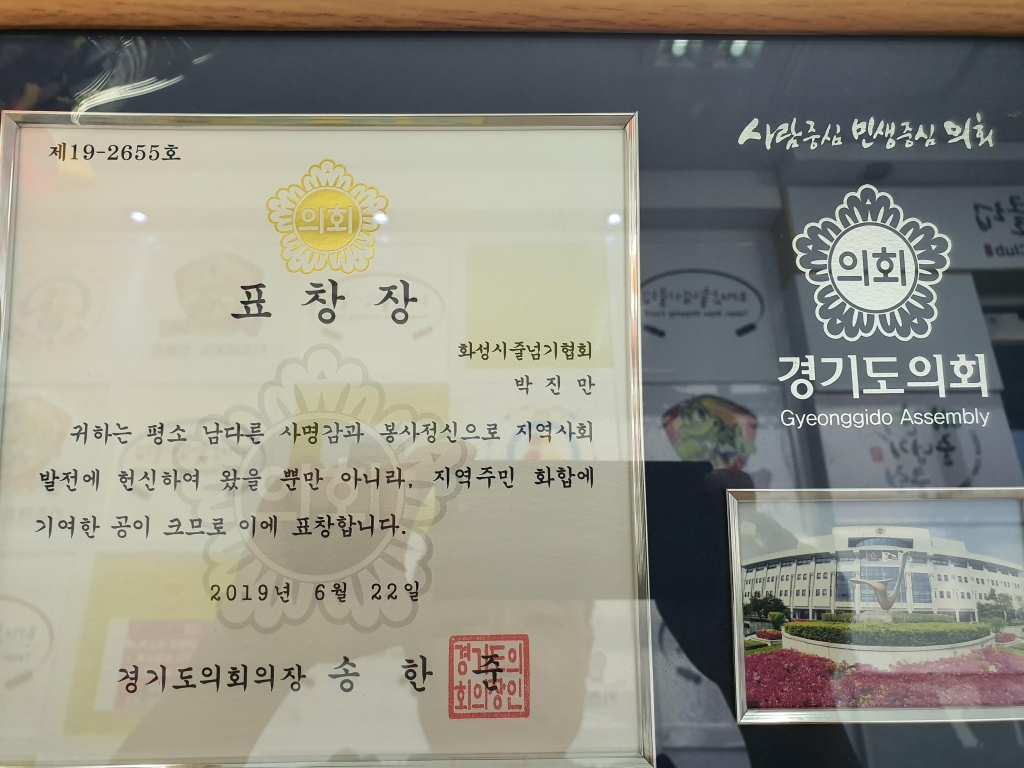 제19-2655호
의회
표 창 장
화성시줄넘기협회
박 진 만
귀하는 평소 남다른 사명감과 봉사정신으로 지역사회
발전에 헌신하여 왔을 뿐만 아니라, 지역주민 화합에
기여한 공이 크므로 이에 표창합니다.
2019년 6월 22일
경기도의회의장 송 한 준
경기도의
회의장인
사람중심 민생중심 의회
의회
경기도의회
Gyeonggido Assembly